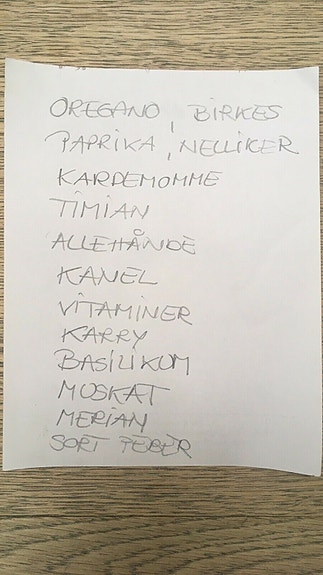 OREGANO, BIRKES
PAPRIKA, NELLIKER
KARDEMOMME
TIMIAN
ALLEHÅNDE
KANEL
VITAMINER
KARRY
BASILIKUM
MUSKAT
MERIAN
SORT PEBER